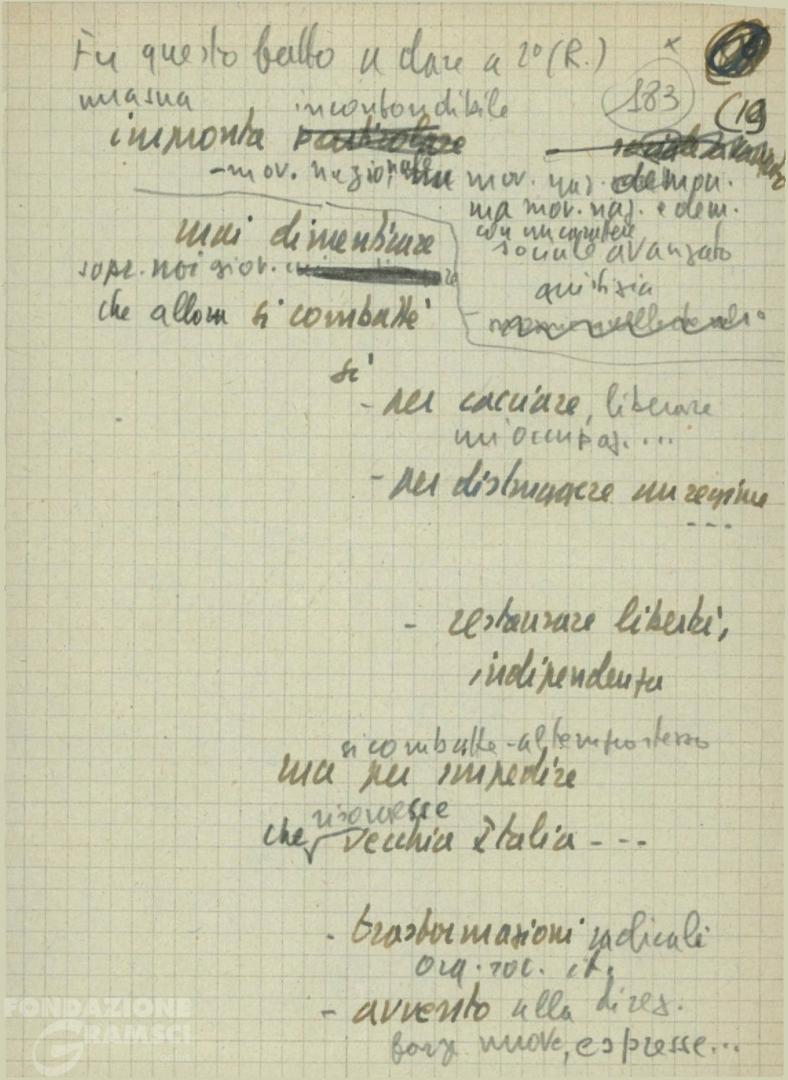 Fu questo fatto a dare a 2º (R.)
183
(19)
una sua incontondibile
impronta
- mov. nazion. mov. naz. dem.
ma mov. naz. e dem.
con un carattere
sociale avanzato
mai dimenticare
sopr. noi giov.
che allora si combatté
si
- per cacciare, liberare
un'occupaz. ...
- per distruggere un regime
---
- restaurare libertà,
indipendenza
si combatté - al tempo stesso
ma per impedire
risorgesse
che vecchia Italia ---
- trasformazioni radicali
org. soc. it.
- avvento alla direz.
forze nuove, espresse...
FONDAZIONE
GRAMSCI